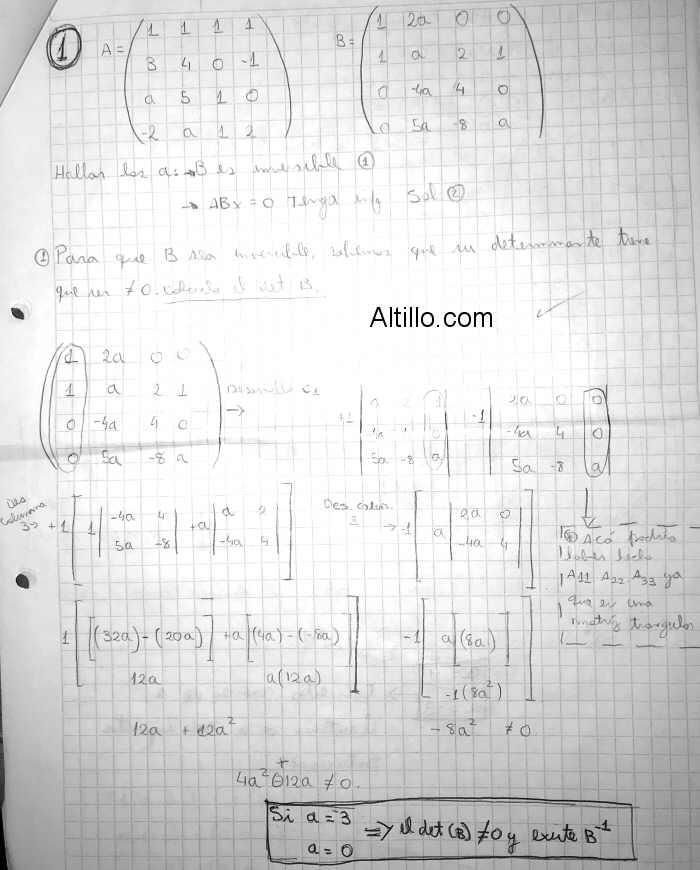 1 A = ( 1 1 1 1
3 4 0 -1
a 5 1 0
-2 a 1 2 )
B = ( 1 2a 0 0
1 a 2 1
0 -4a 4 0
0 5a -8 a )
Hallar los a: → B es inversible ①
→ ABx = 0 Tenga inf Sol ②
① Para que B sea inversible, sabemos que su determinante tiene
que ser ≠ 0. calculo el det B.
Altillo.com
( 1 2a 0 0
1 a 2 1
0 -4a 4 0
0 5a -8 a )
Desarrollo C1
→
+1 | a 2 1
-4a 4 0
5a -8 a |
-1 | 2a 0 0
-4a 4 0
5a -8 a |
Des columna
3 → +1 [ 1 | -4a 4
5a -8 | + a | a 2
-4a 4 | ]
Des. colum.
3 → -1 [ a | 2a 0
-4a 4 | ]
Acá podría
haber hecho
A11 A22 A33 ya
que es una
matriz triangular
1 [ [(32a) - (20a)] + a [(4a) - (-8a)] ] -1 [ a (8a) ]
12a a(12a) -1(8a²)
12a + 12a² - 8a² ≠ 0
+
4a² 12a ≠ 0.
Si a = -3
a = 0
=> el det (B) ≠ 0 y existe B⁻¹